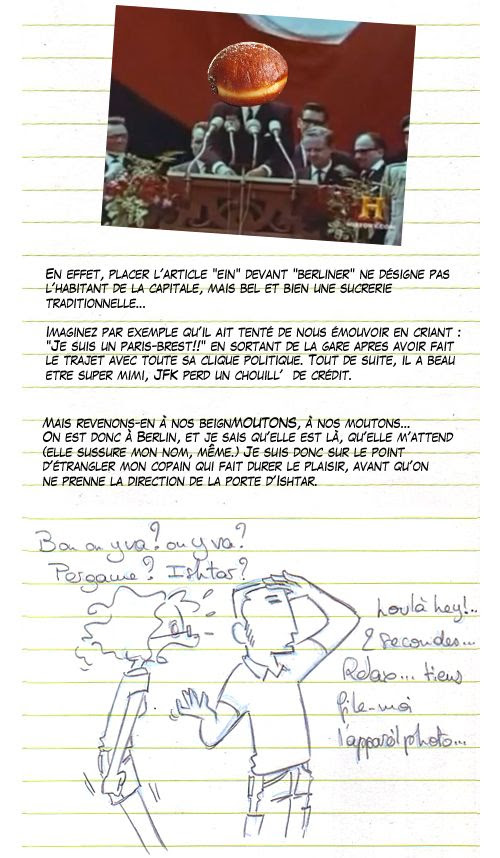 H
HISTORY.COM
EN EFFET, PLACER L'ARTICLE "EIN" DEVANT "BERLINER" NE DÉSIGNE PAS
L'HABITANT DE LA CAPITALE, MAIS BEL ET BIEN UNE SUCRERIE
TRADITIONNELLE...
IMAGINEZ PAR EXEMPLE QU'IL AIT TENTÉ DE NOUS ÉMOUVOIR EN CRIANT :
"JE SUIS UN PARIS-BREST!!" EN SORTANT DE LA GARE APRES AVOIR FAIT
LE TRAJET AVEC TOUTE SA CLIQUE POLITIQUE. TOUT DE SUITE, IL A BEAU
ETRE SUPER MIMI, JFK PERD UN CHOUILL' DE CRÉDIT.
MAIS REVENONS-EN À NOS BEIGNMOUTONS, À NOS MOUTONS...
ON EST DONC À BERLIN, ET JE SAIS QU'ELLE EST LÀ, QU'ELLE M'ATTEND
(ELLE SUSSURE MON NOM, MÊME.) JE SUIS DONC SUR LE POINT
D'ÉTRANGLER MON COPAIN QUI FAIT DURER LE PLAISIR, AVANT QU'ON
NE PRENNE LA DIRECTION DE LA PORTE D'ISHTAR.
Bon on y va? on y va?
Pergame? Ishtar?
houlà hey!..
2 secondes...
Relax... tiens
file-moi
l'appareil photo...